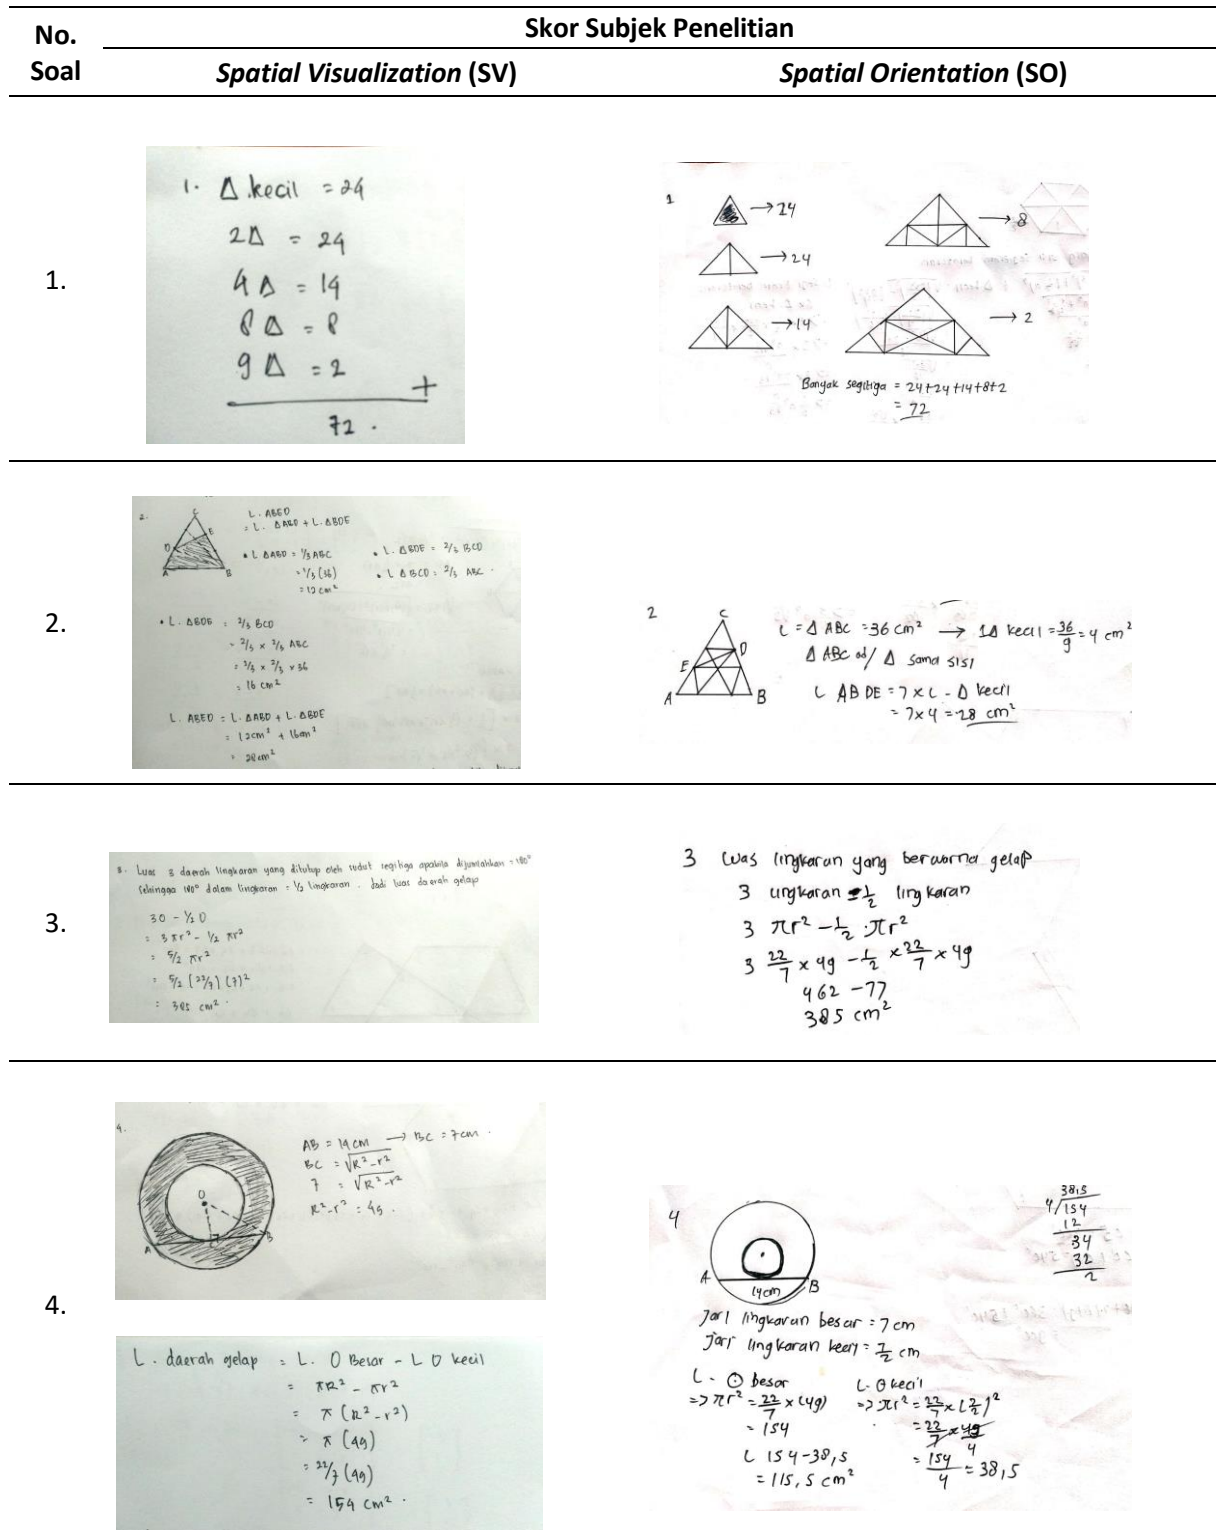 No. Soal
Skor Subjek Penelitian
Spatial Visualization (SV)
Spatial Orientation (SO)
1.
1. Δ kecil = 24
2Δ = 24
4Δ = 14
8Δ = 8
9Δ = 2
+
72.
1
→ 24
→ 24
→ 14
→ 8
→ 2
Banyak segitiga = 24+24+14+8+2
= 72
2.
2.
C
E
D
A
B
L. ABED
= L. ΔABD + L. ΔBDE
• L ΔABD = 1/3 ABC
= 1/3 (36)
= 12 cm²
• L. ΔBDE = 2/3 BCD
• L ΔBCD = 2/3 ABC.
• L. ΔBDE = 2/3 BCD
= 2/3 x 2/3 ABC
= 2/3 x 2/3 x 36
= 16 cm²
L. ABED = L. ΔABD + L. ΔBDE
= 12cm² + 16cm²
= 28cm²
2
C
D
E
A
B
L = Δ ABC = 36 cm² → 1Δ kecil = 36/9 = 4 cm²
Δ ABC ad/ Δ sama sisi
L ABDE = 7 x L - Δ kecil
= 7x4 = 28 cm²
3.
3. Luas 3 daerah lingkaran yang ditutup oleh sudut segitiga apabila dijumlahkan = 180°
Sehingga 180° dalam lingkaran = 1/2 lingkaran. Jadi luas daerah gelap
3O - 1/2 O
= 3πr² - 1/2 πr²
= 5/2 πr²
= 5/2 (22/7) (7)²
= 385 cm².
3 Luas lingkaran yang berwarna gelap
3 lingkaran - 1/2 lingkaran
3 πr² - 1/2 . πr²
3 22/7 x 49 - 1/2 x 22/7 x 49
462 - 77
385 cm²
4.
4.
O
A
B
AB = 14 cm → BC = 7cm.
BC = √R²-r²
7 = √R²-r²
R²-r² = 49.
L. daerah gelap = L. O Besar - L O kecil
= πR² - πr²
= π (R²-r²)
= π (49)
= 22/7 (49)
= 154 cm².
4
A
B
14cm
38,5
4/154
12
34
32
2
Jari lingkaran besar = 7 cm
Jari lingkaran kecil = 7/2 cm
L. ⊙ besar
=> πr² = 22/7 x (49)
= 154
L 154-38,5
= 115,5 cm²
L. O kecil
=> πr² = 22/7 x (7/2)²
= 22/7 x 49/4
= 154/4 = 38,5